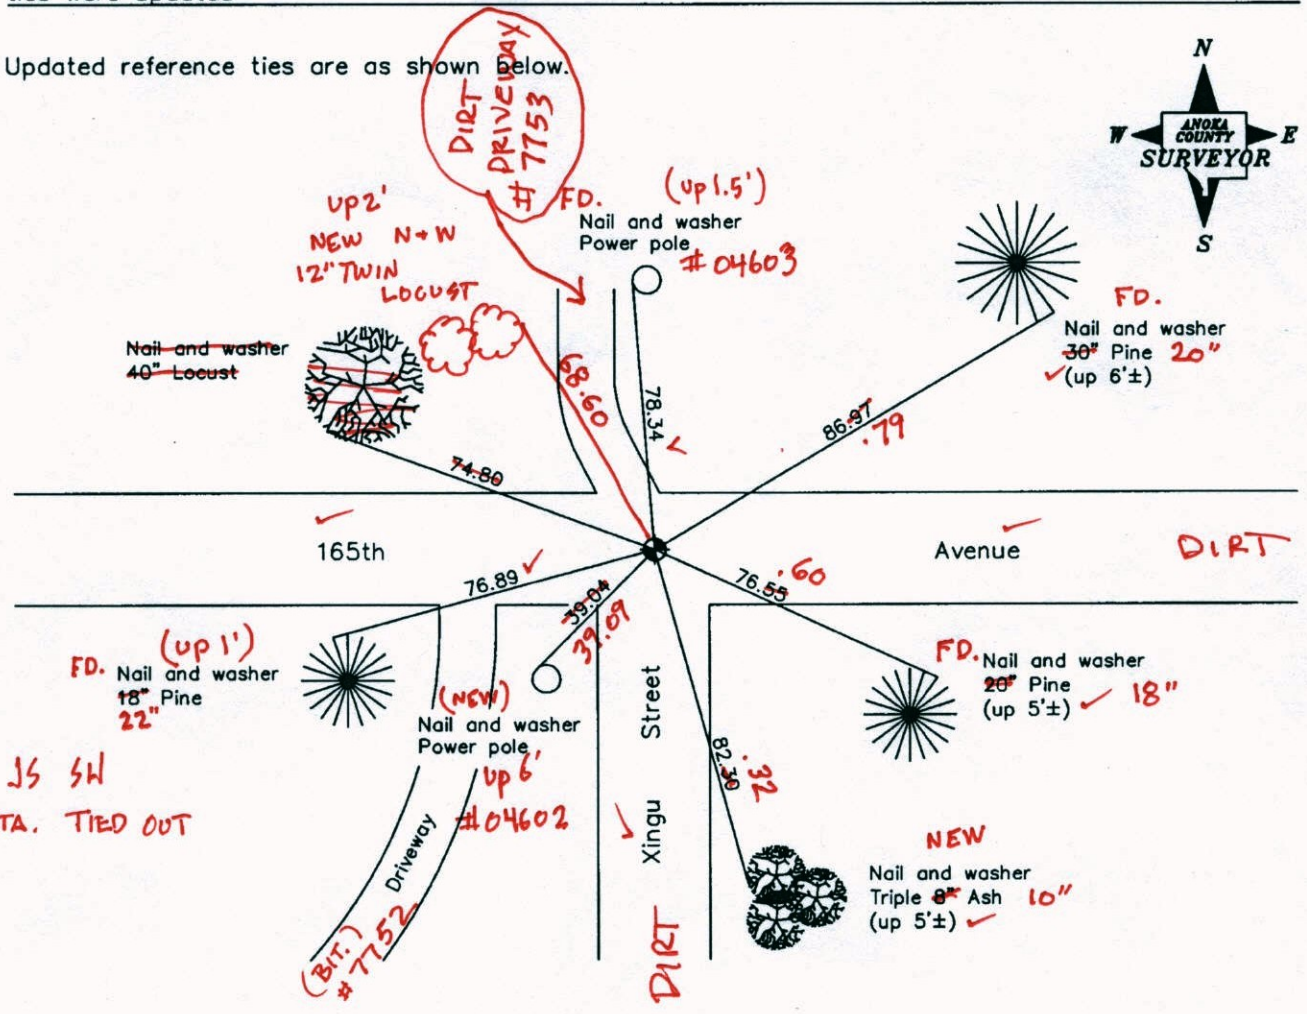 Updated reference ties are as shown below.
DIRT
DRIVEWAY
# 7753
N
W
ANOKA
COUNTY
E
SURVEYOR
S
up 2'
NEW N+W
12" TWIN
LOCUST
FD.
(up 1.5')
Nail and washer
Power pole
#04603
FD.
Nail and washer
30" Pine 20"
(up 6'±)
Nail and washer
40" Locust
68.60
78.34
86.97
.79
74.80
165th
Avenue
DIRT
76.89
39.04
39.09
76.55
.60
(up 1')
FD. Nail and washer
18" Pine
22"
(NEW)
Nail and washer
Power pole
up 6'
#04602
FD. Nail and washer
20" Pine
(up 5'±) 18"
JS SH
TA. TIED OUT
Driveway
(BIT.)
# 7752
Xingu Street
DIRT
82.30
.32
NEW
Nail and washer
Triple 8" Ash 10"
(up 5'±)